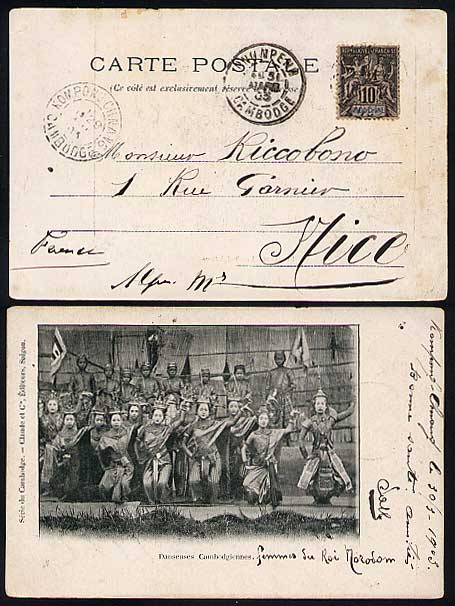 CARTE POSTALE
(Ce côté est exclusivement réservé
RÉPUBLIQUE FRANÇAISE
10
PNUMPENH
31
03
CAMBODGE
KOMPONG-CHNANG
CAMBODGE
Monsieur Riccobono
1 Rue Garnier
Nice
France
Alpes Mes
Série du Cambodge. — Claude et Cie, Éditeurs, Saigon.
Danseuses Cambodgiennes. femmes du Roi Norodom
Kompong Chnang le 30/3 - 1903
Bonne santé amitiés